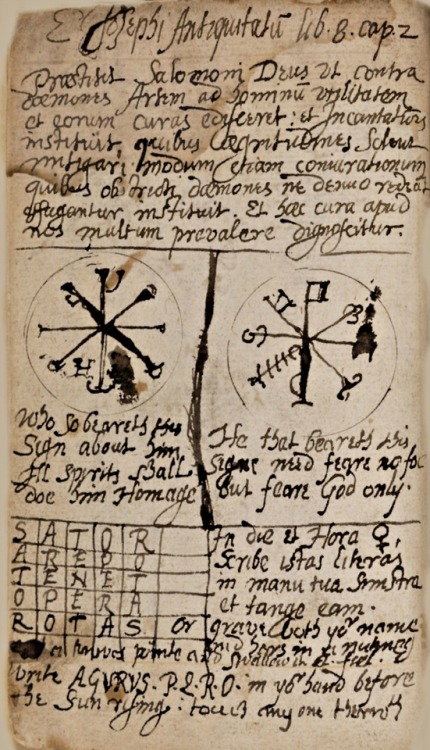 Ex Josephi Antiquitatū lib. 8. cap. 2
Præstitit Salomoni Deus ut contra
dæmones Artem ad hominū utilitatem
et eorum curas edisceret: et Incantationes
instituit, quibus Ægritudines solent
mitigari: modum etiam coniurationum
quibus obstricti dæmones ne denuo redeant
effugantur instituit. Et hæc cura apud
nos multum prevalere dignoscitur.
Who so beareth this
Sign about him
All spirits shall
doe him Homage
He that beareth this
signe need feare no foe
but feare God only.
S A T O R
A R E P O
T E N E T
O P E R A
R O T A S or
In die et Hora ♀,
scribe istas literas
in manu tua sinistra
et tange eam.
grave both yor name
write AGVRVS. P.L.R.O. in yor hand before
the Sun rising. touch any one therwth